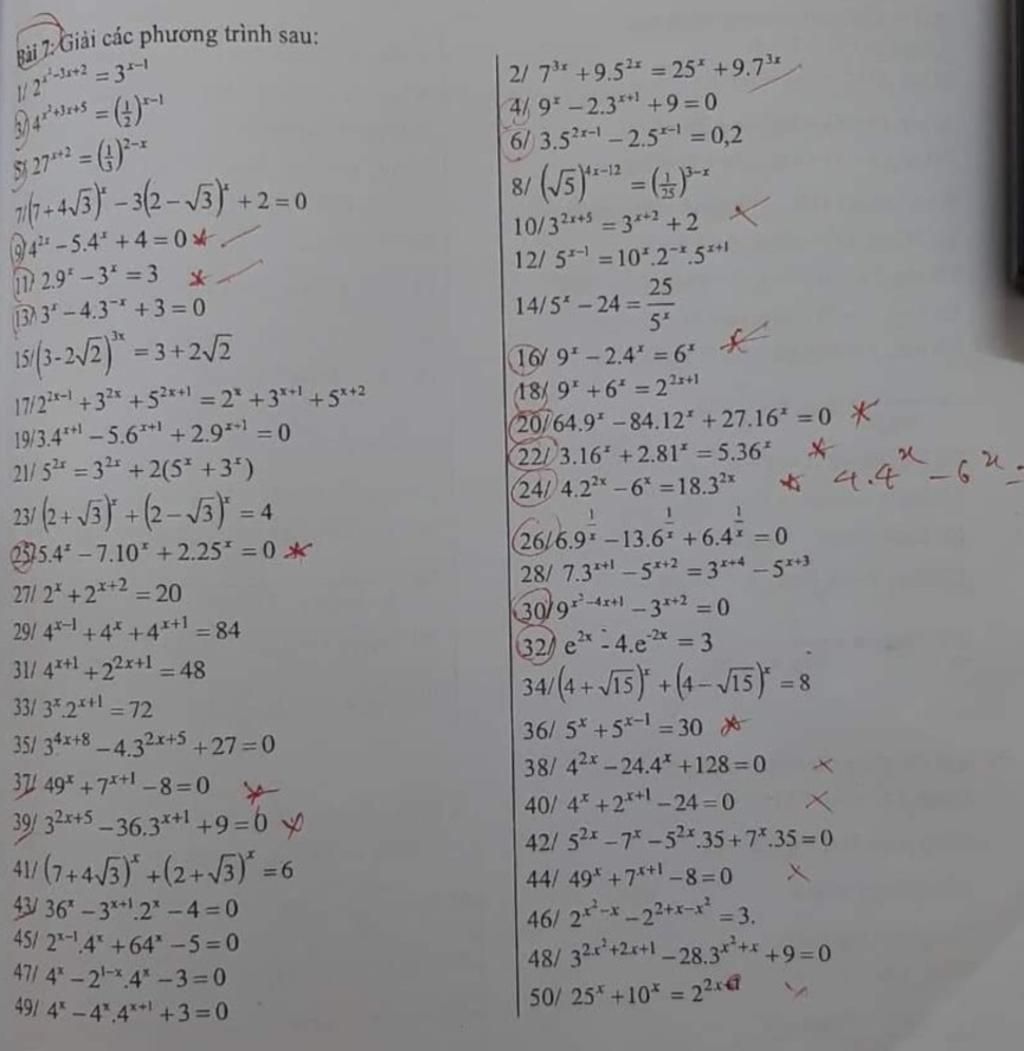 Bài 7: Giải các phương trình sau:
1/ 2^{x²-3x+2} = 3^{x-1}
2/ 7^{3x} + 9.5^{2x} = 25^x + 9.7^{3x}
3/ 4^{x²+3x+5} = (1/2)^{x-1}
4/ 9^x - 2.3^{x+1} + 9 = 0
5/ 27^{x+2} = (1/3)^{2-x}
6/ 3.5^{2x-1} - 2.5^{x-1} = 0,2
7/ (7+4√3)^x - 3(2-√3)^x + 2 = 0
8/ (√5)^{4x-12} = (1/25)^{3-x}
9/ 4^{2x} - 5.4^x + 4 = 0
10/ 3^{2x+5} = 3^{x+2} + 2
11/ 2.9^x - 3^x = 3
12/ 5^{x-1} = 10^x.2^{-x}.5^{x+1}
13/ 3^x - 4.3^{-x} + 3 = 0
14/ 5^x - 24 = 25/5^x
15/ (3-2√2)^{3x} = 3+2√2
16/ 9^x - 2.4^x = 6^x
17/ 2^{2x-1} + 3^{2x} + 5^{2x+1} = 2^x + 3^{x+1} + 5^{x+2}
18/ 9^x + 6^x = 2^{2x+1}
19/ 3.4^{x+1} - 5.6^{x+1} + 2.9^{x+1} = 0
20/ 64.9^x - 84.12^x + 27.16^x = 0
21/ 5^{2x} = 3^{2x} + 2(5^x + 3^x)
22/ 3.16^x + 2.81^x = 5.36^x
23/ (2+√3)^x + (2-√3)^x = 4
24/ 4.2^{2x} - 6^x = 18.3^{2x}
4.4^x - 6^x =
25/ 5.4^x - 7.10^x + 2.25^x = 0
26/ 6.9^{1/x} - 13.6^{1/x} + 6.4^{1/x} = 0
27/ 2^x + 2^{x+2} = 20
28/ 7.3^{x+1} - 5^{x+2} = 3^{x+4} - 5^{x+3}
29/ 4^{x-1} + 4^x + 4^{x+1} = 84
30/ 9^{x²-4x+1} - 3^{x+2} = 0
31/ 4^{x+1} + 2^{2x+1} = 48
32/ e^{2x} - 4.e^{-2x} = 3
33/ 3^x.2^{x+1} = 72
34/ (4+√15)^x + (4-√15)^x = 8
35/ 3^{4x+8} - 4.3^{2x+5} + 27 = 0
36/ 5^x + 5^{x-1} = 30
37/ 49^x + 7^{x+1} - 8 = 0
38/ 4^{2x} - 24.4^x + 128 = 0
39/ 3^{2x+5} - 36.3^{x+1} + 9 = 0
40/ 4^x + 2^{x+1} - 24 = 0
41/ (7+4√3)^x + (2+√3)^x = 6
42/ 5^{2x} - 7^x - 5^{2x}.35 + 7^x.35 = 0
43/ 36^x - 3^{x+1}.2^x - 4 = 0
44/ 49^x + 7^{x+1} - 8 = 0
45/ 2^{x-1}.4^x + 64^x - 5 = 0
46/ 2^{x²-x} - 2^{2+x-x²} = 3.
47/ 4^x - 2^{1-x}.4^x - 3 = 0
48/ 3^{2x²+2x+1} - 28.3^{x²+x} + 9 = 0
49/ 4^x - 4^x.4^{x+1} + 3 = 0
50/ 25^x + 10^x = 2^{2x+1}